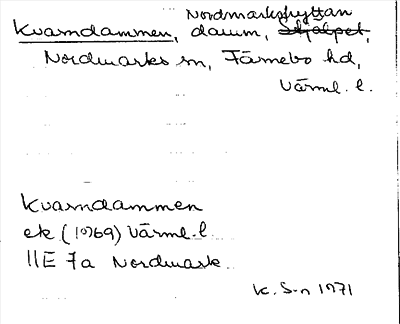 Nordmarkshyttan
Kvarndammen, damm, Skjälpet,
Nordmarks sn, Färnebo hd,
Värml. l.
Kvarndammen
ek (1969) Värml. l.
11E 7a Nordmark.
K. S-n 1971